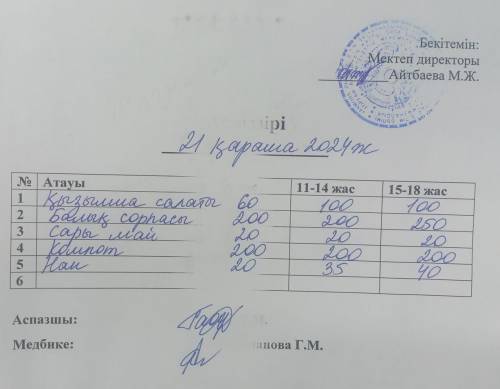 Бекітемін:
Мектеп директоры
Айтбаева М.Ж.
21 қараша 2024ж
№ Атауы 11-14 жас 15-18 жас
1 Қызылша салаты 60 100 100
2 Балық сорпасы 200 200 250
3 Сары май 20 20 20
4 Компот 200 200 200
5 Нан 20 35 40
6
Аспазшы:
Медбике: Г.М.